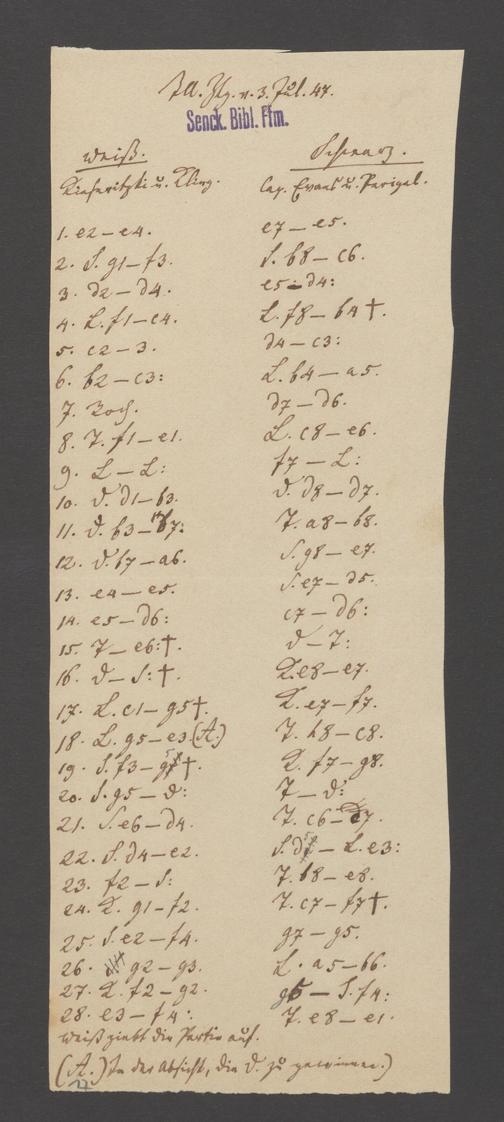 Ill. Ztg. v. 3. Jul. 47.
Senck. Bibl. Ffm.
weiß. Schwarz.
Kieseritzki u. Kling. Cap. Evans u. Perigal.
1. e2 — e4. e7 — e5.
2. S. g1 — f3. S. b8 — c6.
3. d2 — d4. e5 — d4:
4. L. f1 — c4. L. f8 — b4†.
5. c2 — 3. d4 — c3:
6. b2 — c3: L. b4 — a5.
7. Roch. d7 — d6.
8. T. f1 — e1. L. c8 — e6.
9. L — L: f7 — L:
10. D. d1 — b3. D. d8 — d7.
11. D. b3 — b7: T. a8 — b8.
12. D. b7 — a6. S. g8 — e7.
13. e4 — e5. S. e7 — d5.
14. e5 — d6: c7 — d6:
15. T — e6:†. D — T:
16. D — S:†. K. e8 — e7.
17. L. c1 — g5†. K. e7 — f7.
18. L. g5 — e3 (A.) T. h8 — c8.
19. S. f3 — g5†. K. f7 — g8.
20. S. g5 — D: T — D:
21. S. e6 — d4. T. c6 — c7.
22. S. d4 — e2. S. d5 — L. e3:
23. f2 — S: T. b8 — e8.
24. K. g1 — f2. T. c7 — f7†.
25. S. e2 — f4. g7 — g5.
26. g2 — g3. L. a5 — b6.
27. K. f2 — g2. g5 — S. f4:
28. e3 — f4: T. e8 — e1.
Weiß giebt die Partie auf.
(A.) In der Absicht, die D. zu gewinnen.)